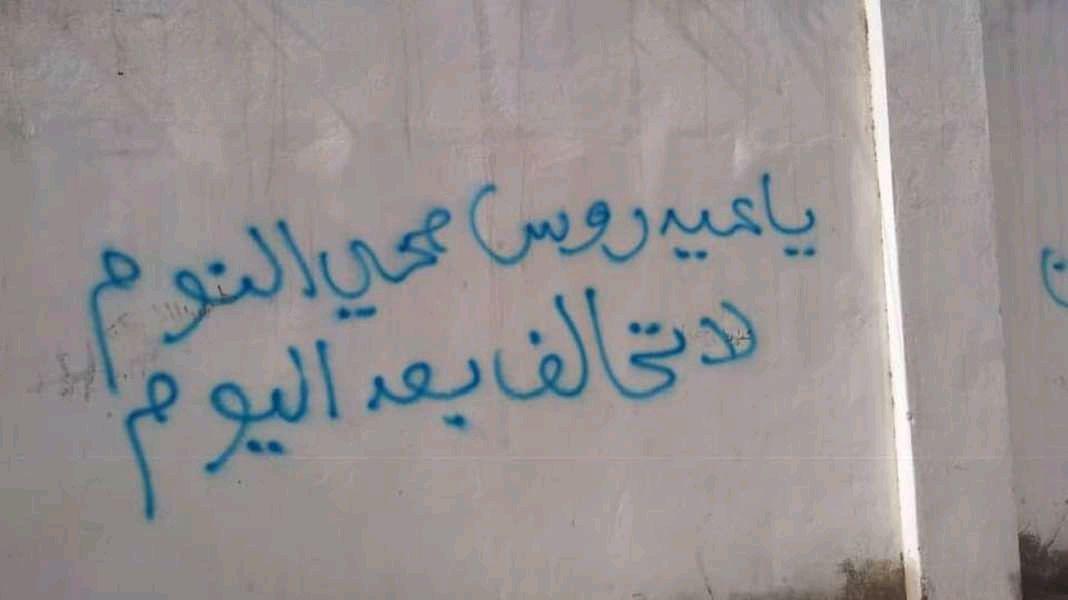 يا عيدروس صحي النوم
لا تحالف بعد اليوم